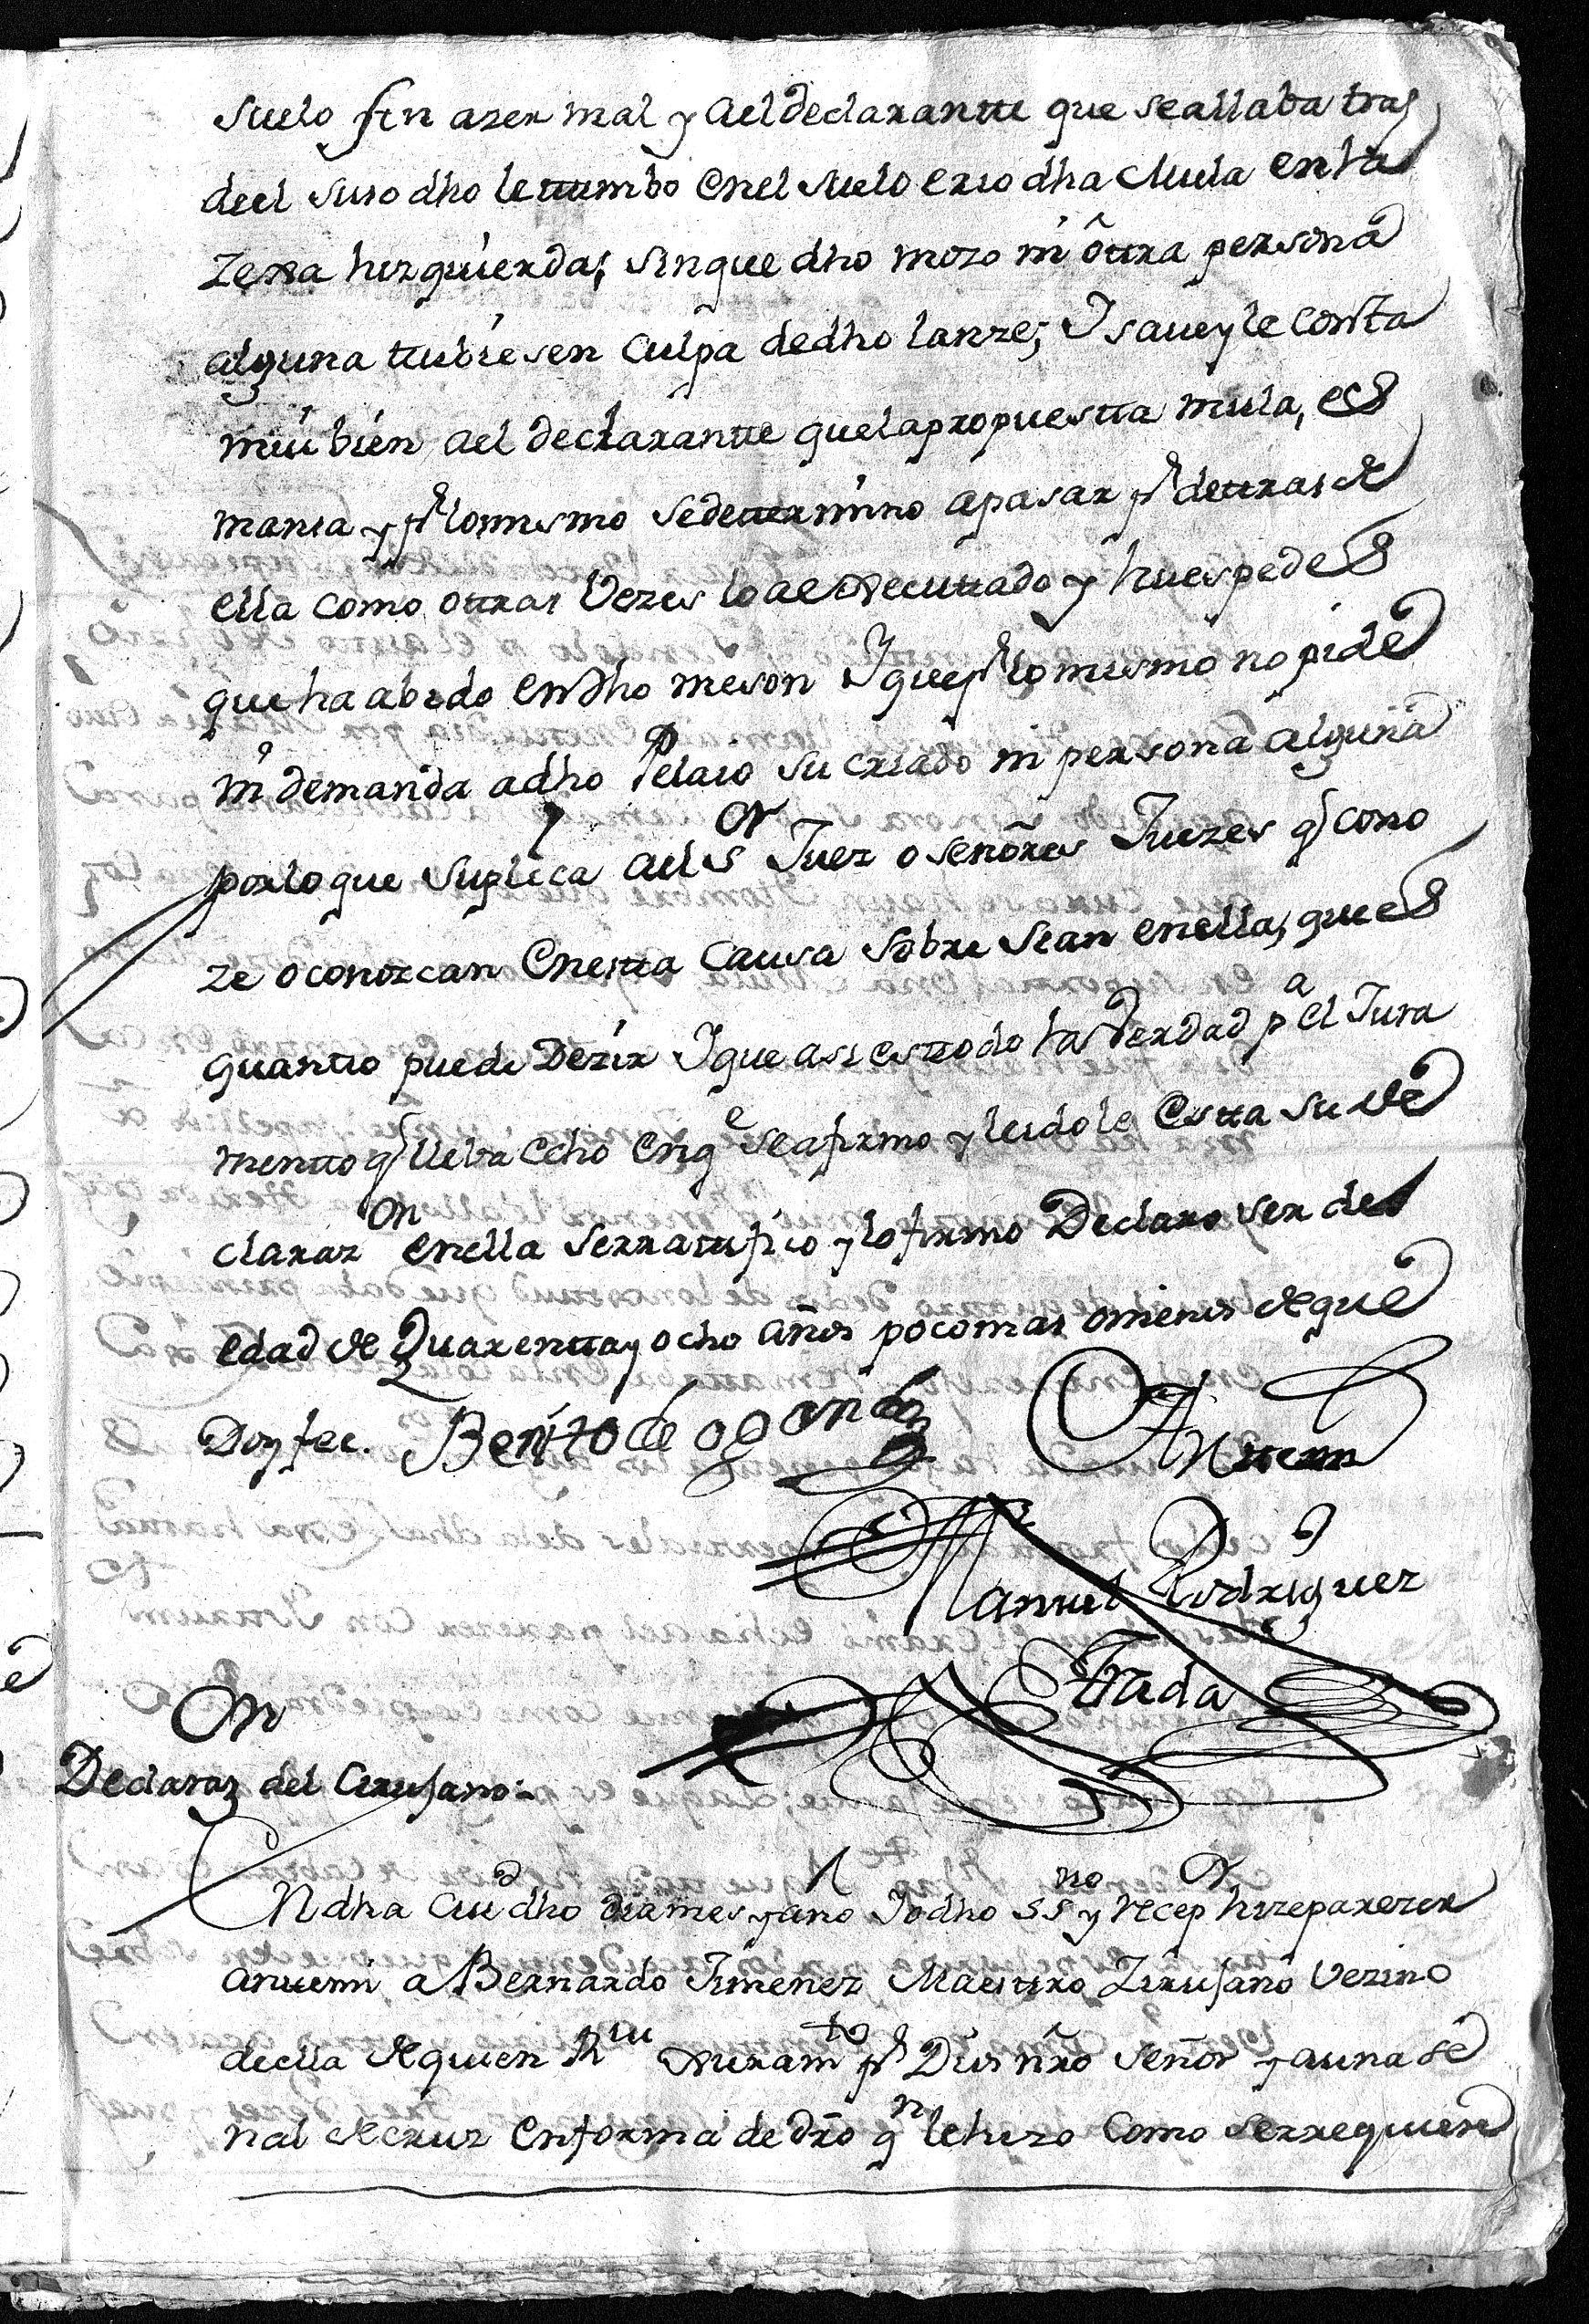 suelo sin azer mal y ael declarantte que seallaba tras
deel suso dho lettumbo enel suelo e rio dha Mula en la
Zexa hizquierda; sin que dho mozo ni ôttra persona
alguna ttubiesen culpa dedho lanze; Y saue y le consta
mui bien ael declarantte que la propuestta mula, es
mansa y pr lo mismo sedettermino apasar pr dettras de
ella como ottras Vezes lo a executtado y huespedes
que ha abido en dho meson Y que pr lo mismo no pide
ni demanda a dho Pelaio su criado ni persona alguna
por lo que suplica ael Sor Juez o señores Juezes q cono
ze o conozcan en estta causa sobre sean en ella, que es
quantto puede Dezir Y que asi es ttodo la Verdad pa el Jura
mentto q lleba echo en qe se afirmo y leidole estta su de
claraz on en ella se rrattifico y lo firmo Declaro ser de
edad de Quarentta y ocho años poco mas o menos de que
Doy fee. Benito de ogando Antte mi
Manuel Rodriguez
Trada
Declaraz on del Cirujano:
EN dha Ciud dho dia mes y año Yo dho ssno y Recepor hize parezer
antte mi a Bernardo Jimenez Maesttro Zirujano Vezino
de ella de quien Rui Juramto pr Dios nro señor y a una se
ñal de cruz en forma de dro qn le hizo como se rrequiere